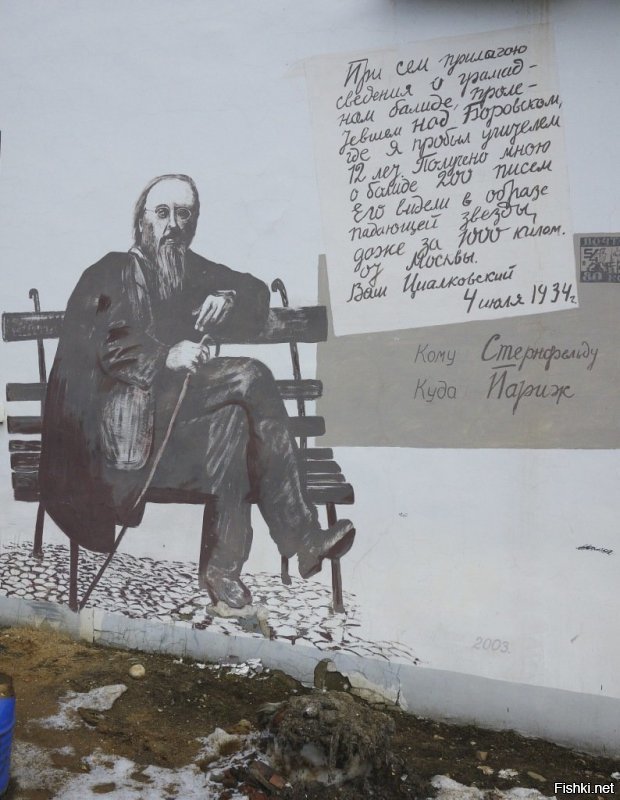 При сем прилагаю
сведения о громад-
ном болиде, проле-
тевшем над Боровском,
где я пробыл учителем
12 лет. Получено мною
о болиде 200 писем
Его видели в образе
падающей звезды,
даже за 1000 килом.
от Москвы.
Ваш Циолковский
4 июля 1934г.
ПОЧТА
Кому Стернфельду
Куда Париж
2003.
Fishki.net